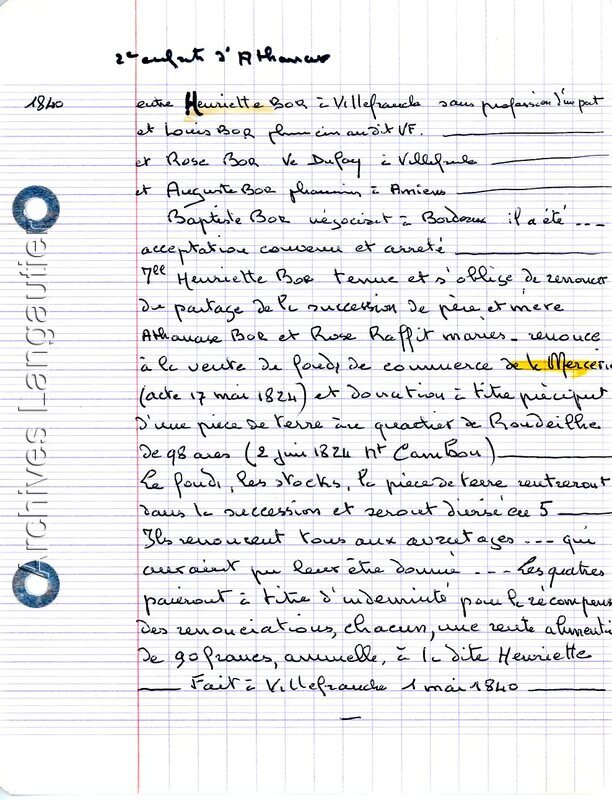 2e enfants d'Athanase
1840 entre Henriette BOR à Villefranche sans profession d'un part
et Louis BOR pharmacien audit VF.
et Rose BOR Ve Dufay à Villefranche
et Auguste BOR pharmacien à Amiens
Baptiste BOR négociant à Bordeaux il a été ...
acceptation convenu et arreté
7ee Henriette BOR tenue et s'oblige de renoncer
du partage de la succession de père et mère
Athanase BOR et Rose Raffit mariés - renonce
à la vente du fonds de commerce de la Mercerie
(acte 17 mai 1824) et donation à titre préciput
d'une pièce de terre au quartier de Roudeilhe
de 98 ares (2 juin 1824 Nt Cambou)
Le fonds, les stocks, la pièce de terre rentreront
dans la succession et seront divisé en 5
Ils renoncent tous aux avantages --- qui
auraient pu leur être donné --- Les quatres
paieront à titre d'indemnité pour la récompense
des renonciations, chacun, une rente alimenti
de 90 francs, annuelle, à la dite Henriette
Fait à Villefranche 1 mai 1840
Archives Langautier